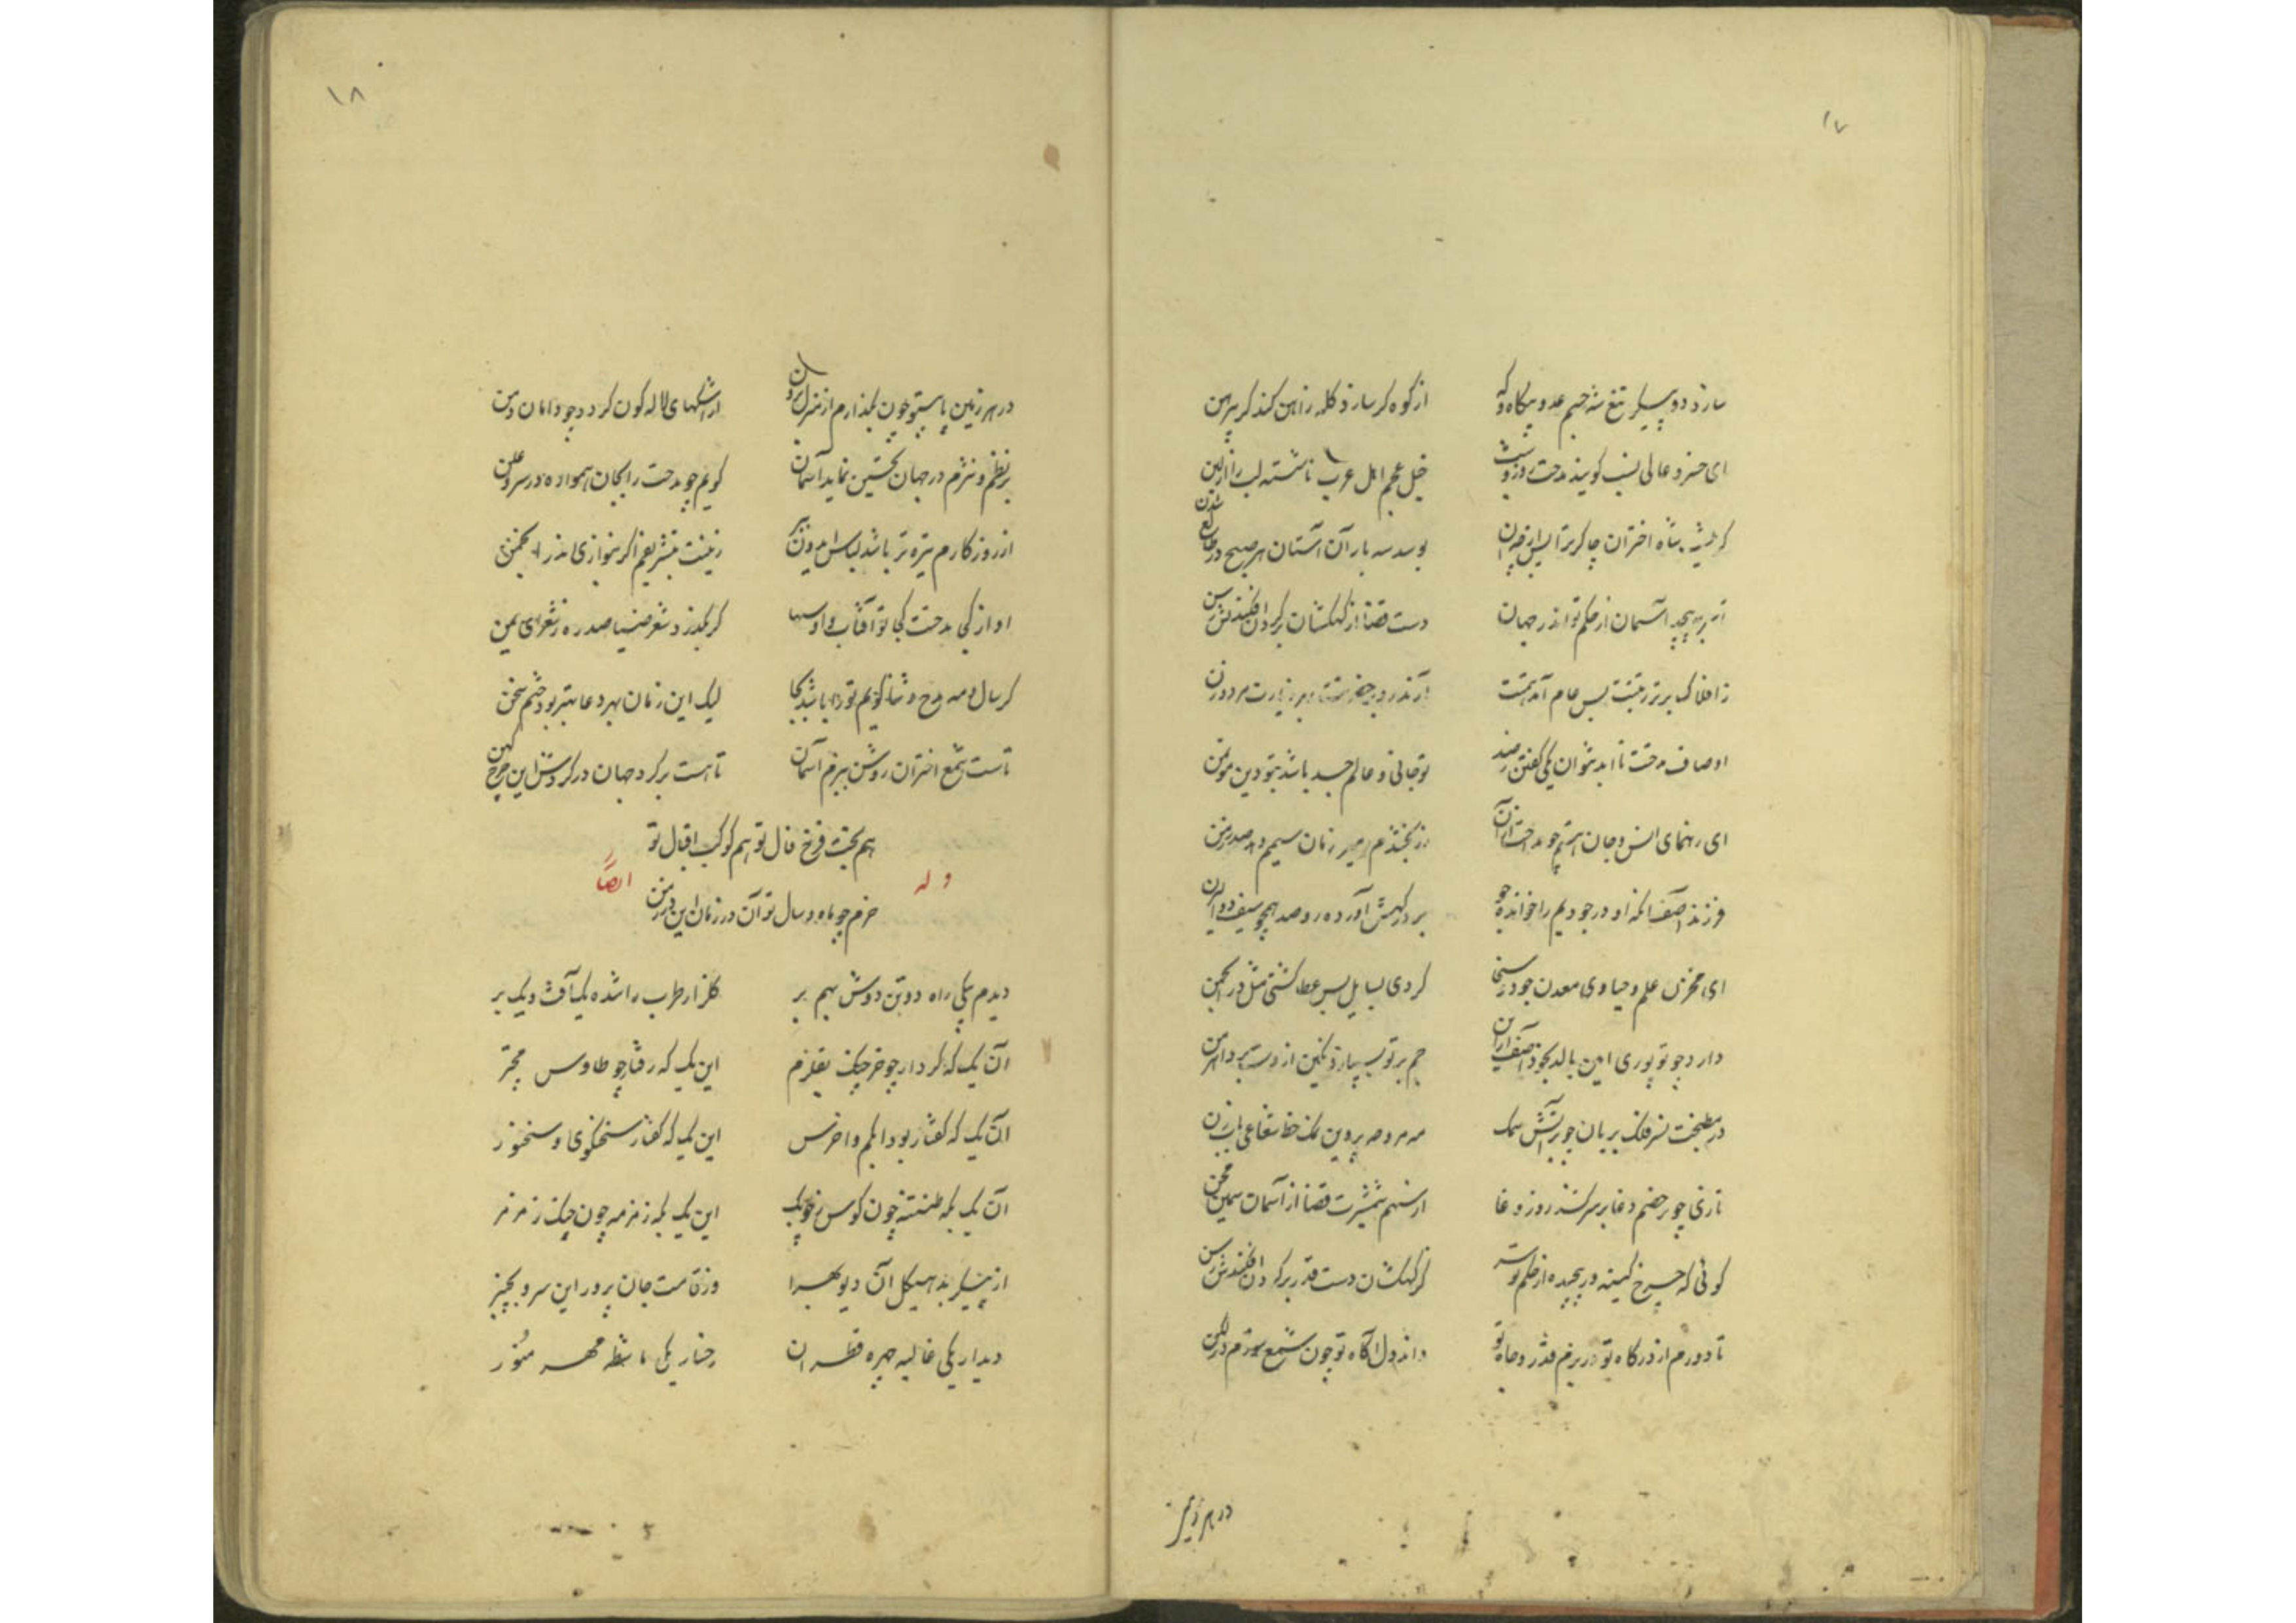 ۱۷
سازد دو پیکر تیغ شه جسم عدو بیگاه و گه
از کوه گر سازد کله ز آهن کند گر پیرهن
ای خسرو عالی نسب گویند مدحت روز و شب
خیل عجم اهل عرب ناشسته لب را از لبن
شاه اختران چاکر ترا
بوسد سه بار آن آستان هر صبح در
آسمان از حکم تو اندر جهان
دست قضا از کهکشان بر گردن افکندش رسن
ز افلاک برتر رتبتت بس عام آمد
اوصاف مدحت تا ابد نتوان یکی گفتن ز صد
تو جانی و عالم جسد باشد بتو دین مؤتمن
ای رهنمای انس و جان هستم چو مدحت
زمان سیم
فرزند آصف آنکه او در جود یم را خوانده جو
بر درگهش آورده رو صد همچو سیف ذوالیزن
ای مخزن علم و حیا وی معدن جود و سخا
کردی بسایل بس عطا گشتی مثل در انجمن
دارد چو تو پوری امین بالد بخود آصف
جم بر تو بسپارد نگین از دستبرد اهرمن
در مطبخت نسر فلک بریان چو بر آتش سمک
مه مروحه پروین نمک خط شعاعی بابزن
تازی چو بر خصم دغا بر سر کشد روز وغا
از سهم شمشیرت قضا از آسمان سیمین مجن
گوئی که چرخ کینه ور پیچیده از حکم تو سر
کز کهکشان دست قدر بر گردن افکندش رسن
تا دورم از درگاه تو در بزم قدر و جاه تو
داند دل آگاه تو چون شمع سوزم در لگن
در هر زمین
۱۸
در هر زمین پا بستو چون بگذارم از منزل برون
از اشکهای لاله گون گردد چو دامان دمن
بر نظم و نثرم در جهان تحسین نماید آسمان
گویم چو مدحت را بجان همواره در سر و علن
از روزگارم تیره تر باشد لباس
زینت بتشریفم اگر نوازی اندر انجمن
او از کجی مدحت کجا تو آفتاب و او سها
گر بگذرد شعر ضیا صد ره ز شعرای یمن
گر سال و مه مدح و ثنا گویم ترا باشد بجا
لیک این زمان بهر دعا بهتر بود ختم سخن
تاست شمع اختران روشن ببزم آسمان
تا هست بر گرد جهان در گردش این چرخ کهن
هم بخت فرخ فال تو هم کوکب اقبال تو
خرم چو ماه و سال تو آن در زمان این در زمن
وله ایضاً
دیدم بیکی راه دو تن دوش بهم بر
گلزار طرب را شده یک آفت و یک بر
آن یک که کردار چو خرچنگ بقلزم
این یک که رفتار چو طاوس مجتر
آن یک که گفتار بود ابکم و اخرس
این یک که گفتار سخنگوی و سخنور
آن یک بگه طنطنه چون کوس
این یک بگه زمزمه چون چنگ ز مزمر
از پیکر بد هیکل آن دیو
وز قامت جان پرور این سرو
دیدار یکی غالیه چهره قطران
رخسار یکی ماشطه مهر منور